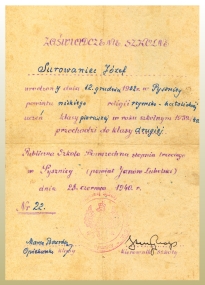 ZAŚWIADCZENIE SZKOLNE
Surowaniec Józef
urodzony dnia 12. grudnia 1932 r. w Pysznicy
powiatu niskiego religii rzymsko-katolickiej
uczeń klasy pierwszej w roku szkolnym 1939/40
przechodzi do klasy drugiej.
Publiczna Szkoła Powszechna stopnia trzeciego
w Pysznicy (powiat Janów Lubelski)
dnia 28. czerwca 1940 r.
Nr 22.
Opiekun klasy
Kierownik szkoły